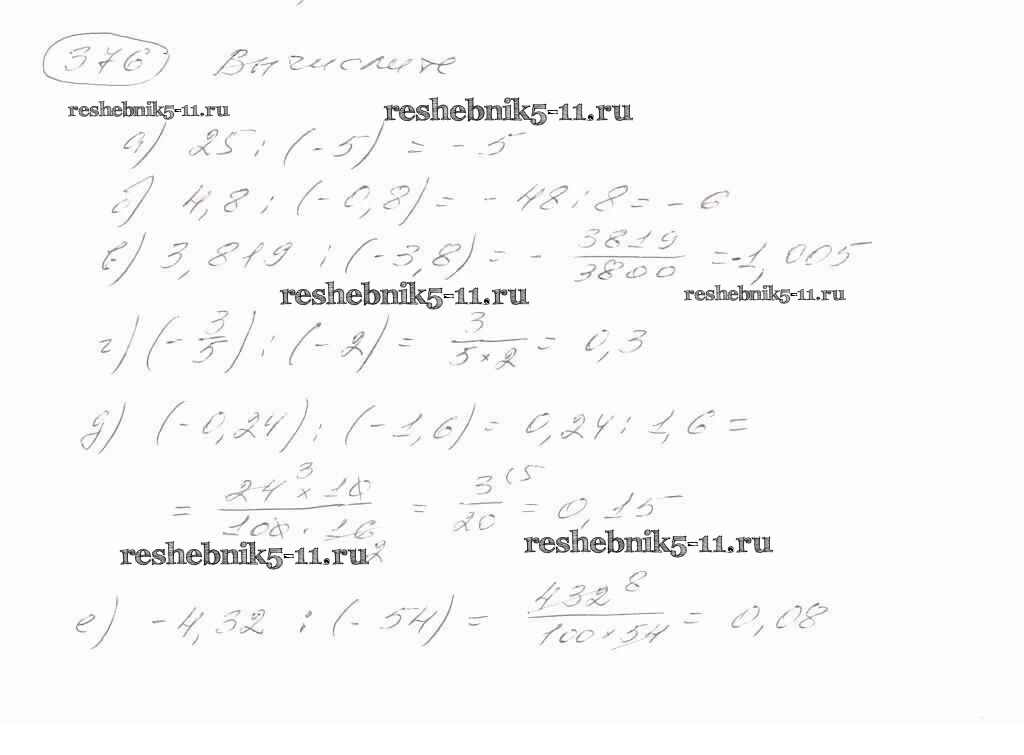 376 Вычислите
reshebnik5-11.ru reshebnik5-11.ru
а) 25 : (-5) = -5
б) 4,8 : (-0,8) = -48:8 = -6
в) 3,819 : (-3,8) = - 3819/3800 = -1,005
reshebnik5-11.ru reshebnik5-11.ru
г) (-3/5) : (-2) = 3/(5×2) = 0,3
д) (-0,24) : (-1,6) = 0,24 : 1,6 =
= (24 3 × 10)/(100 · 16 2) = 3 (5/20 = 0,15
reshebnik5-11.ru reshebnik5-11.ru
е) -4,32 : (-54) = 432 8/(100×54) = 0,08